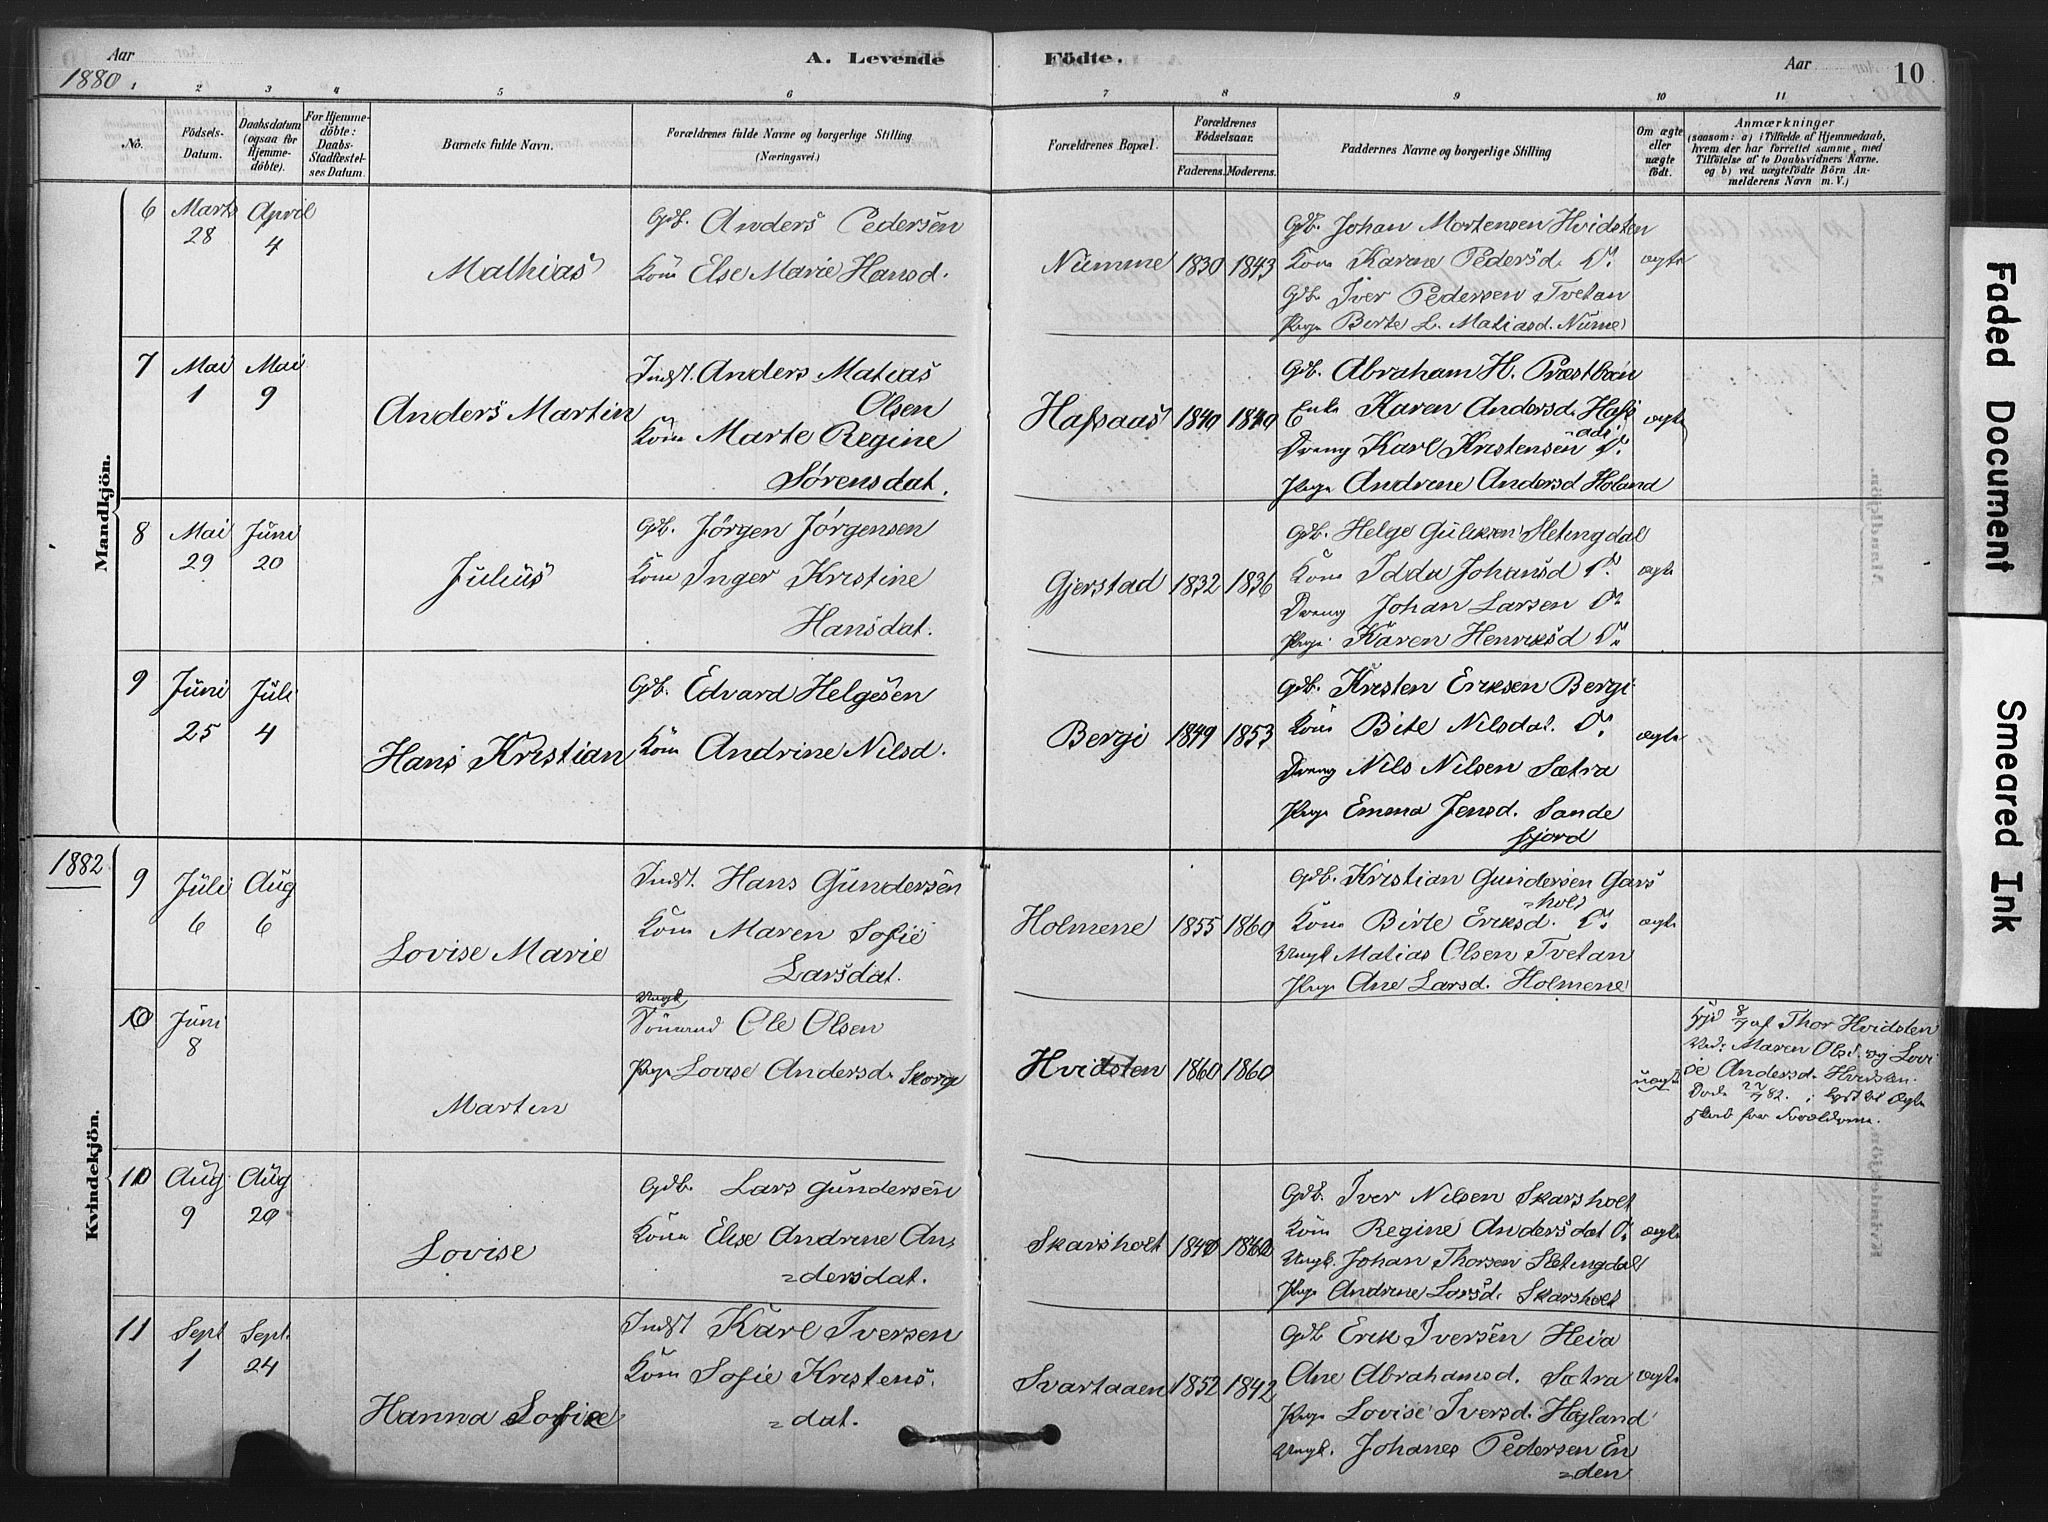 Aar
1880
A. Levende
Födte.
Aar
10
1
2
3
4
5
6
7
8
9
10
11
No.
Födsels-
Datum.
Daabsdatum
(ogsaa for
Hjemme-
döbte).
For Hjemme-
döbte:
Daabs-
Stadfæstel-
ses Datum.
Barnets fulde Navn.
Forældrenes fulde Navne og borgerlige Stilling
(Næringsvei.)
Forældrenes Bopæl.
Forældrenes
Födselsaar.
Faderens.
Moderens.
Faddernes Navne og borgerlige Stilling
Om ægte
eller
uægte
födt.
Anmærkninger
(saasom: a) i Tilfælde af Hjemmedaab,
hvem der har forrettet samme, med
Tilföielse af to Daabsvidners Navne.
og b) ved uægtefödte Börn An-
melderens Navn m. V.)
Mandkjön.
6
Marts
28
April
4
Mathias
Gdb. Anders Pedersen
Kom Else Marie Hansd.
Numme
1830
1843
Gdb. Johan Mortensen Hvidsten
Kone Karine Pedersd. Do.
Gdb Iver Pedersen Tvetan
Pige Berte L. Matiasd. Nume
ægte
7
Mai
1
Mai
9
Anders Martin
Indst. Anders Matias
Olsen
Kone Marte Regine
Sørensdat.
Hafsaas
1840
1840
Gdb. Abraham H. Præstbøen
Enke Karen Andersd. Hafs
-aas.
Dreng Karl Kristensen Do.
Pige Andrine Andersd Holand
ægte
8
Mai
29
Juni
20
Julius
Gdb. Jörgen Jörgensen
Kone Inger Kristine
Hansdat.
Gjerstad
1832
1836
Gdb. Helge Guliksen Sletingdal
Kone Idda Johansd Do.
Dreng Johan Larsen Do.
Pige Karen Henriksd Do.
ægte
9
Juni
25
Juli
4
Hans Kristian
Gdb. Edvard Helgesen
Kone Andrine Nilsd.
Bergi
1849
1853
Gdb. Kristen Eriksen Bergi
Kone Bite Nilsdat. Do.
Dreng Nils Nilsen Sætra
Pige Emma Jensd. Sande
fjord
ægte
1882
Kvindekjön.
9
Juli
6
Aug
6
Lovise Marie
Indst. Hans Gundersen
Kone Maren Sofie
Larsdat.
Holmene
1855
1860
Gdb. Kristian Gundersen Gars
=holt
Kone Birte Eriksd. Do.
Ungk Matias Olsen Tvetan
Pige Ane Larsd. Holmene
ægte
10
Juni
8
Marten
Ungk
Sömand Ole Olsen
Pige Lovise Andersd. Skorge
Hvidsten
1860
1860
uægte
Hjd 8/7 af Thor Hvidsten
Vid. Maren Olsd. og Lovi
se Andersd. Hvidsten.
11
Aug
9
Aug
20
Lovise
Gdb. Lars Gundersen
Kone Else Andrine An
=dersdat.
Skarsholt
1840
Gdb. Iver Nilsen Skarsholt
Kone Regine Andersdat Do.
Ungk. Johan Thorsen Sletingdal
Pige Andrine Larsd. Skarsholt
ægte
11
Sept
1
Sept.
24
Hanna Sofie
Indst Karl Iversen
Kone Sofie Kristens.
=dat.
Svartaaen
1852
1842
Gdb Erik Iversen Heia
Ane Abrahamsd. Sætra
Pige Lovise Iversd. Høgland
Ungk. Johanes Pedersen En
=den
ægte
Faded Document
Smeared Ink